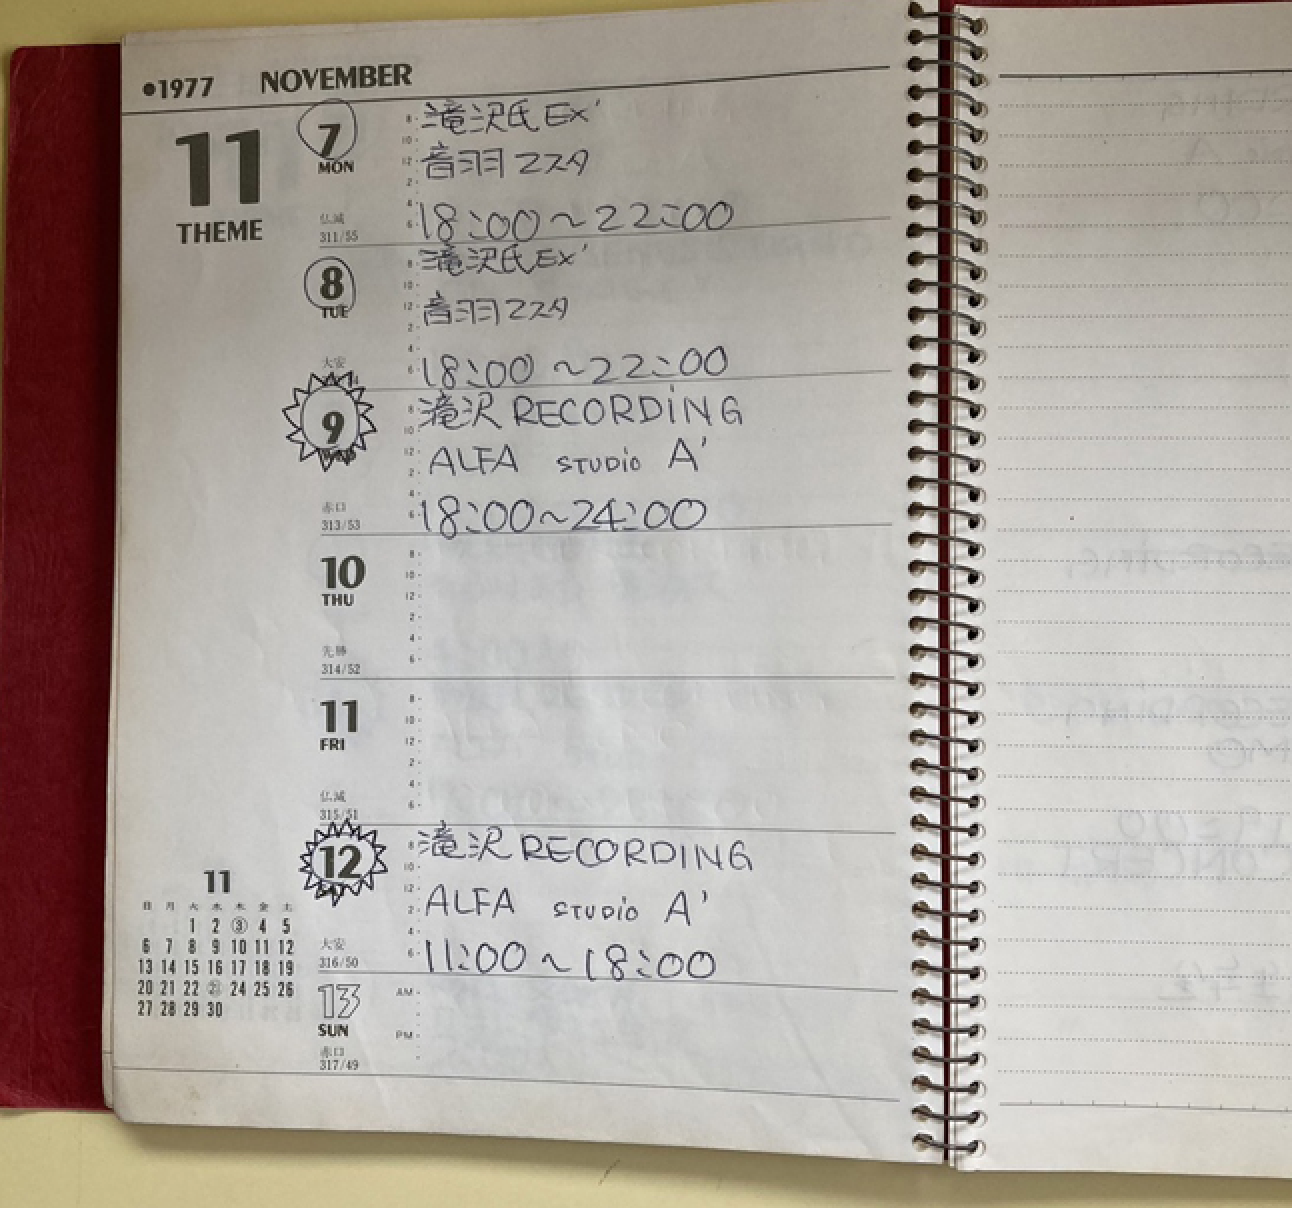 ●1977 NOVEMBER
11
THEME
7
MON
仏滅
311/55
8
10
12
2
4
6
滝沢氏 EX'
音羽 マスタ
18:00~22:00
8
TUE
大安
8
10
12
2
4
6
滝沢氏 EX'
音羽 マスタ
18:00~22:00
9
赤口
313/53
8
10
12
2
4
6
滝沢 RECORDING
ALFA STUDIO A'
18:00~24:00
10
THU
先勝
314/52
8
10
12
2
4
6
11
FRI
仏滅
315/51
8
10
12
2
4
6
12
大安
316/50
8
10
12
2
4
6
滝沢 RECORDING
ALFA STUDIO A'
11:00~18:00
13
SUN
赤口
317/49
AM
PM
11
日 月 火 水 木 金 土
1 2 3 4 5
6 7 8 9 10 11 12
13 14 15 16 17 18 19
20 21 22 23 24 25 26
27 28 29 30